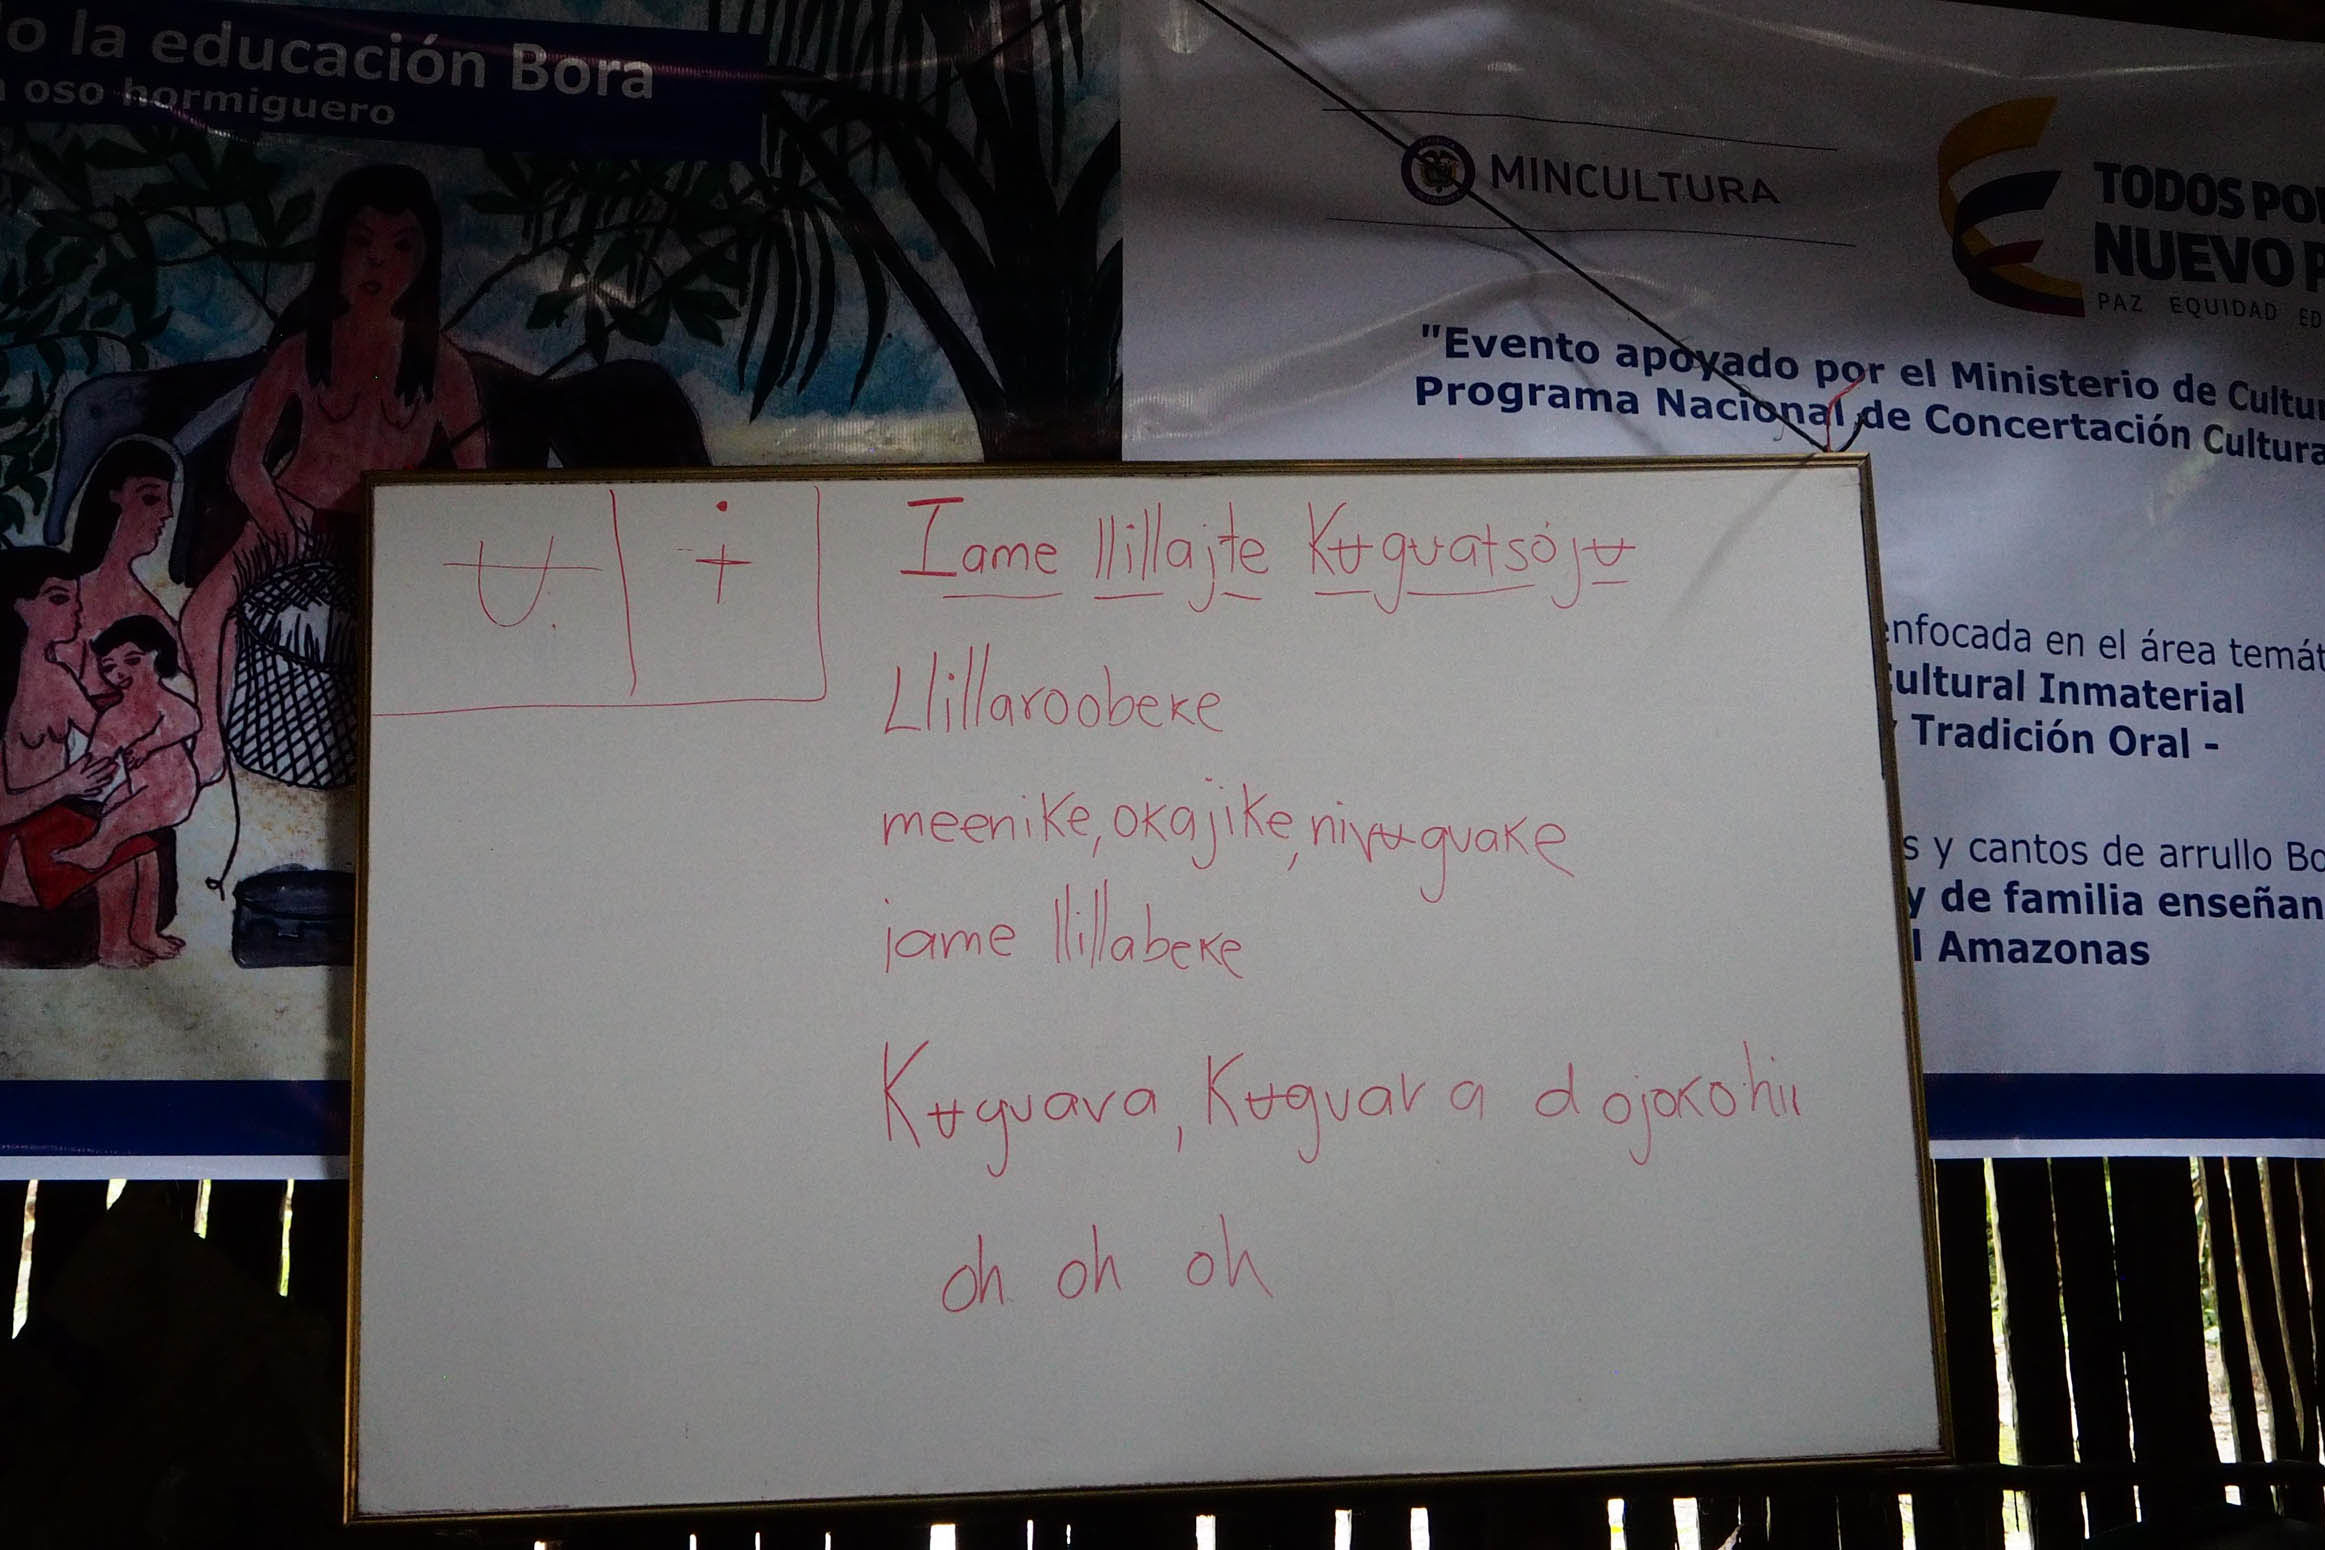 o la educación Bora
oso hormiguero
MINCULTURA
TODOS PO
NUEVO P
PAZ EQUIDAD ED
"Evento apoyado por el Ministerio de Cultu
Programa Nacional de Concertación Cultura
enfocada en el área temát
ultural Inmaterial
Tradición Oral -
s y cantos de arrullo Bo
y de familia enseñan
l Amazonas
ʉ ɨ
Iame llillajte Kʉguatsójʉ
Llillaroobeke
meenike, okajike, nivʉguake
iame llillabeke
Kʉguava, Kʉguava dojokohii
oh oh oh